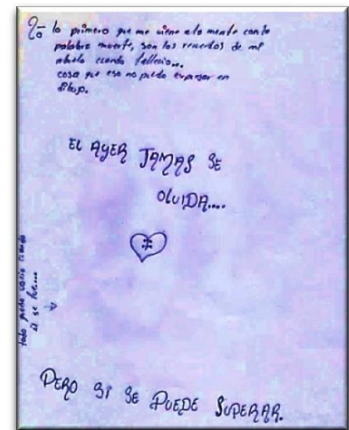 2- lo primero que me viene a la mente con la
palabra muerte, son los recuerdos de mi
abuelo cuando fallecio...
cosa que eso no puedo expresar en
dibujo.
EL AYER JAMAS SE
OLVIDA....
todo quedo vacio cuando
él se fue...
PERO SI SE PUEDE SUPERAR.